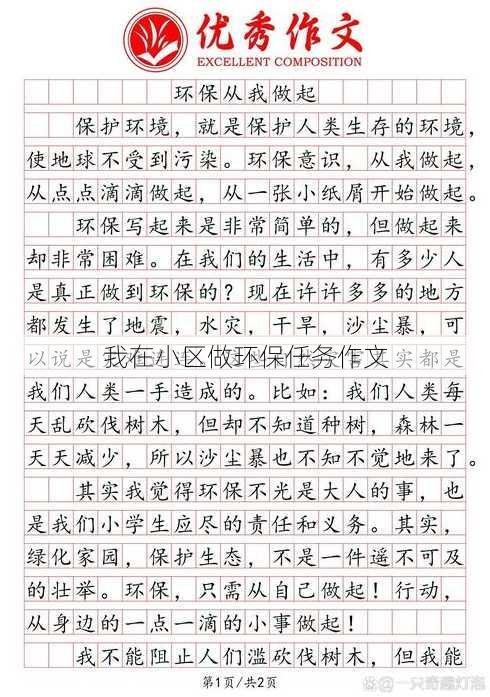 优秀作文
EXCELLENT COMPOSITION
环保从我做起
保护环境，就是保护人类生存的环境，
使地球不受到污染。环保意识，从我做起，
从点点滴滴做起，从一张小纸屑开始做起。
环保写起来是非常简单的，但做起来
却非常困难。在我们的生活中，有多少人
是真正做到环保的？现在许许多多的地方
都发生了地震，水灾，干旱，沙尘暴，可
以说是
我在小区做环保任务作文
实都是
我们人类一手造成的。比如：我们人类每
天乱砍伐树木，但却不知道种树，森林一
天天减少，所以沙尘暴也不知不觉地来了。
其实我觉得环保不光是大人的事，也
是我们小学生应尽的责任和义务。其实，
绿化家园，保护生态，不是一件遥不可及
的壮举。环保，只需从自己做起！行动，
从身边的一点一滴的小事做起！
我不能阻止人们滥砍伐树木，但我能
第1页/共2页
@一只奇趣灯泡